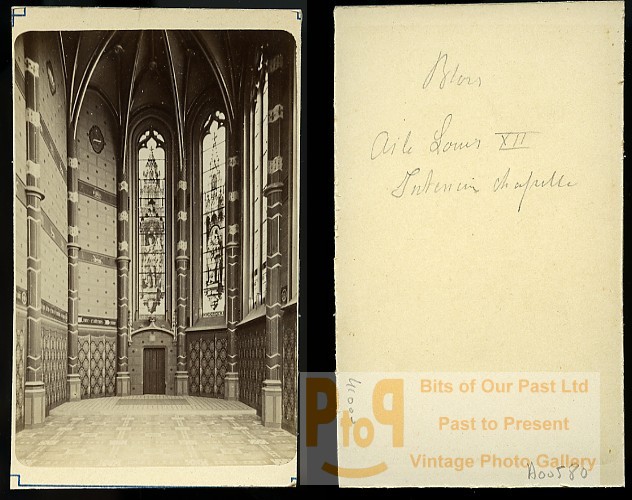 Blois
Aile Louis XII
Interieur chapelle
Bits of Our Past Ltd
PtoP
Past to Present
Vintage Photo Gallery
A00580